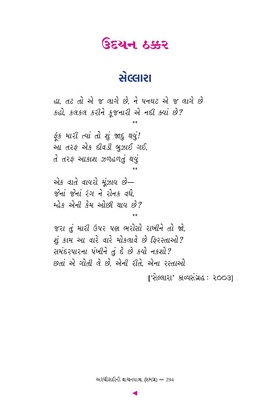 ઉદયન ઠક્કર
સેલ્લારા
હા, તટ તો એ જ લાગે છે, ને પનઘટ એ જ લાગે છે
કહો, કલકલ કરીને કૂજનારી એ નદી ક્યાં છે?
**
ફૂંક મારી ત્યાં તો શું જાદુ થયું!
આ તરફ એક દીવડી બુઝાઈ ગઈ,
તે તરફ આકાશ ઝળહળતું થયું
**
એક વાતે વાયરો મૂંઝાય છે—
જેનાં જેનાં રંગ ને રોનક વધે,
મ્હેક એની કેમ ઓછી થાય છે?
**
જરા તું મારી ઉપર પણ ભરોસો રાખીને તો જો,
શું કામ આ વારે વારે મોકલાવે છે ફિરસ્તાઓ?
સમંદરપારના પંખીને તું દે છે કયો નકશો?
છતાં એ ગોતી લે છે, એની રીતે, એના રસ્તાઓ
['સેલ્લારા' કાવ્યસંગ્રહ : ૨૦૦૩]
— 294